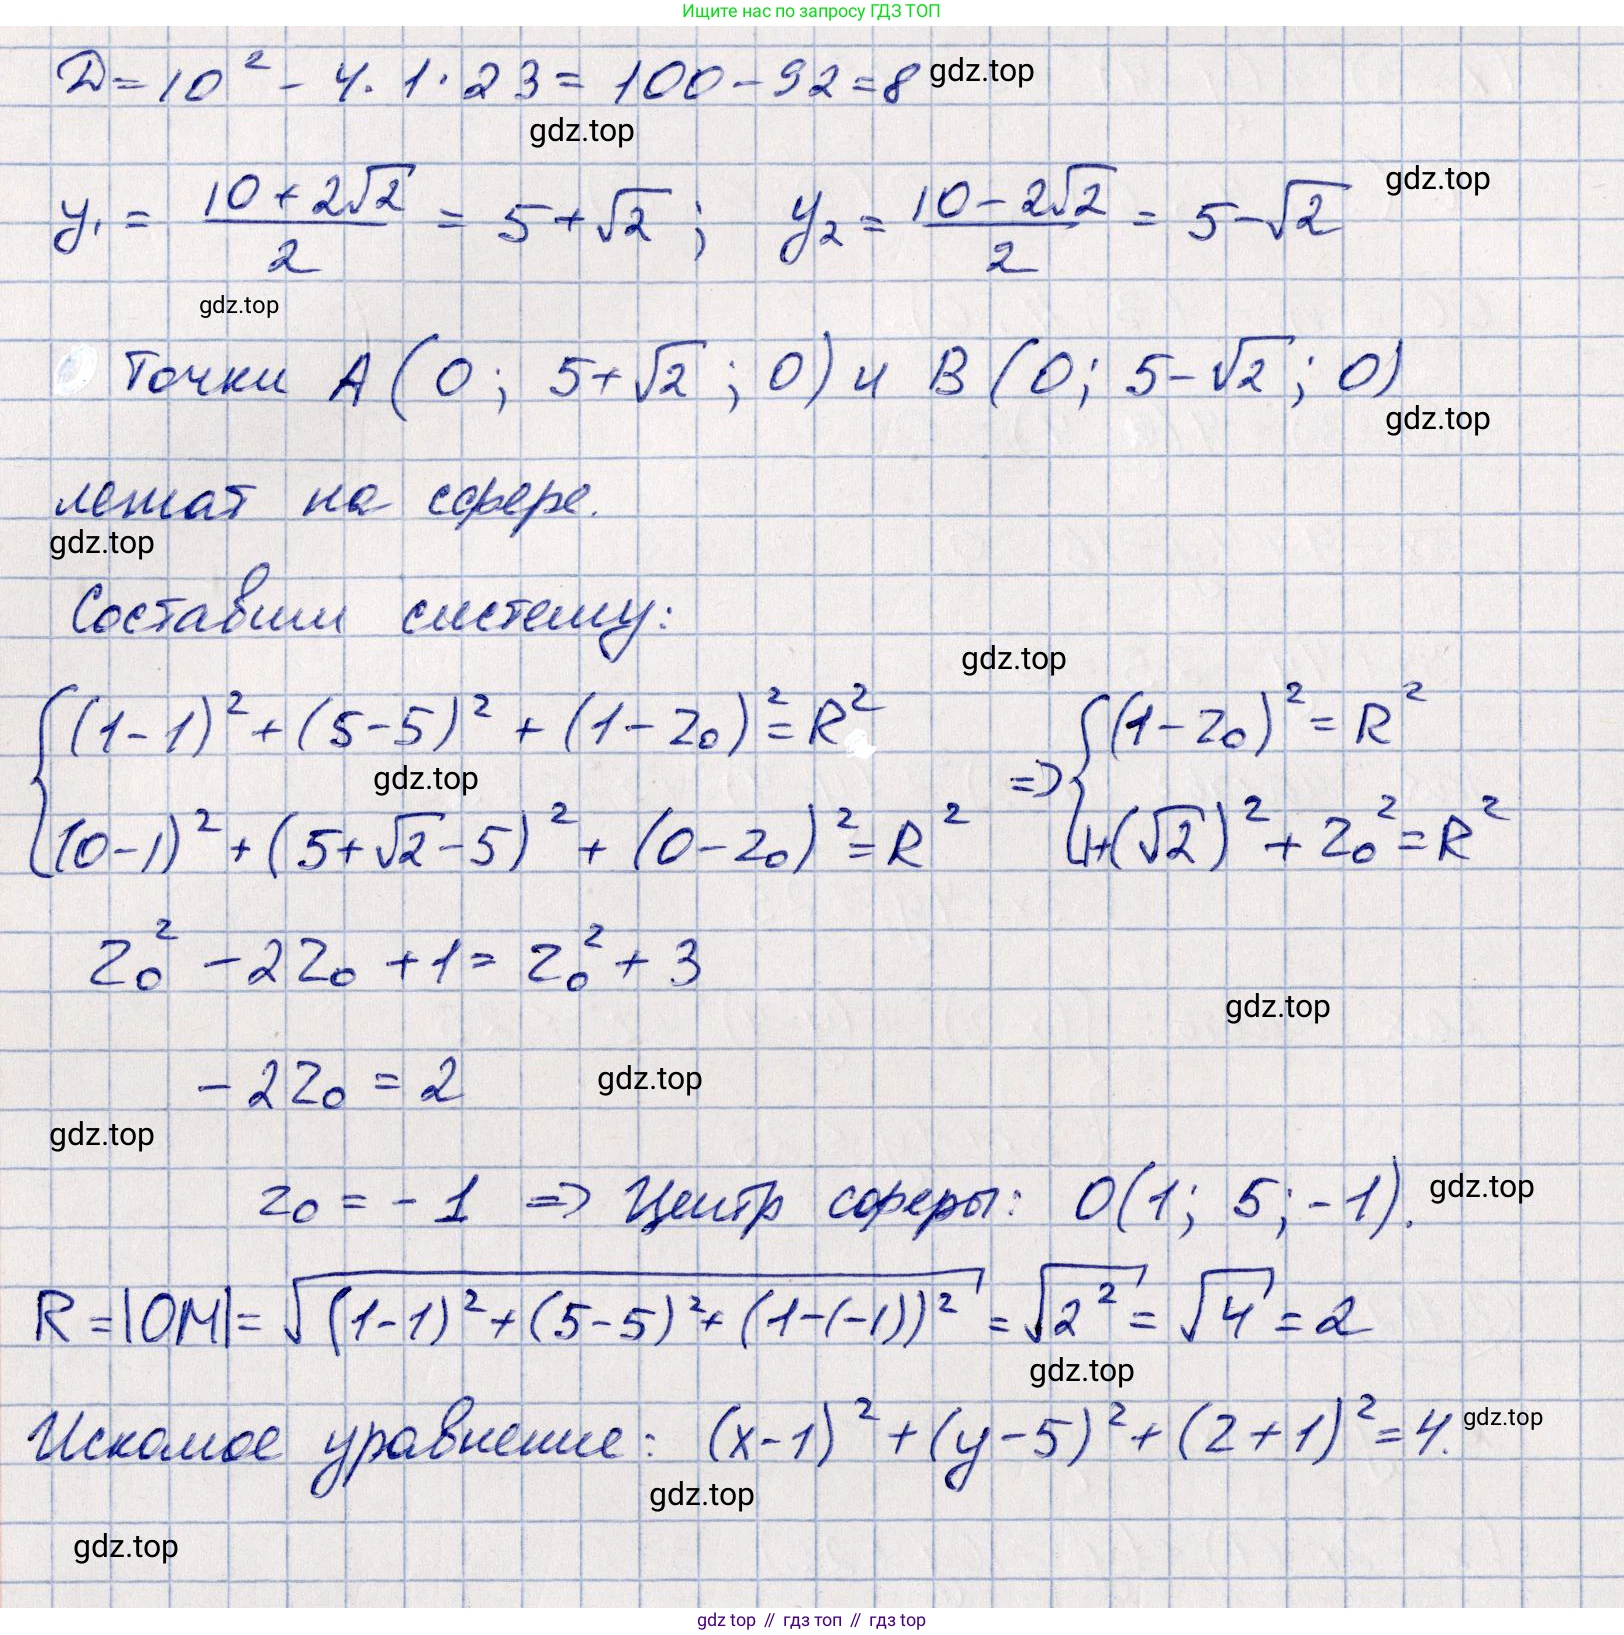 Ищите нас по запросу ГДЗ ТОП
D = 10² - 4 · 1 · 23 = 100 - 92 = 8 gdz.top
gdz.top
y₁ = (10 + 2√2)/2 = 5 + √2 ; y₂ = (10 - 2√2)/2 = 5 - √2 gdz.top
gdz.top
Точки A (0 ; 5 + √2 ; 0) и B (0 ; 5 - √2 ; 0)
gdz.top
лежат на сфере.
gdz.top
Составим систему:
gdz.top
{ (1 - 1)² + (5 - 5)² + (1 - z₀)² = R² => { (1 - z₀)² = R²
gdz.top
(0 - 1)² + (5 + √2 - 5)² + (0 - z₀)² = R² 1 + (√2)² + z₀² = R²
z₀² - 2z₀ + 1 = z₀² + 3
gdz.top
- 2z₀ = 2 gdz.top
gdz.top
z₀ = - 1 => Центр сферы: O(1; 5; -1). gdz.top
R = |OM| = √((1 - 1)² + (5 - 5)² + (1 - (-1))²) = √2² = √4 = 2
gdz.top
Искомое уравнение: (x - 1)² + (y - 5)² + (z + 1)² = 4. gdz.top
gdz.top
gdz.top
gdz top // гдз топ // гдз top